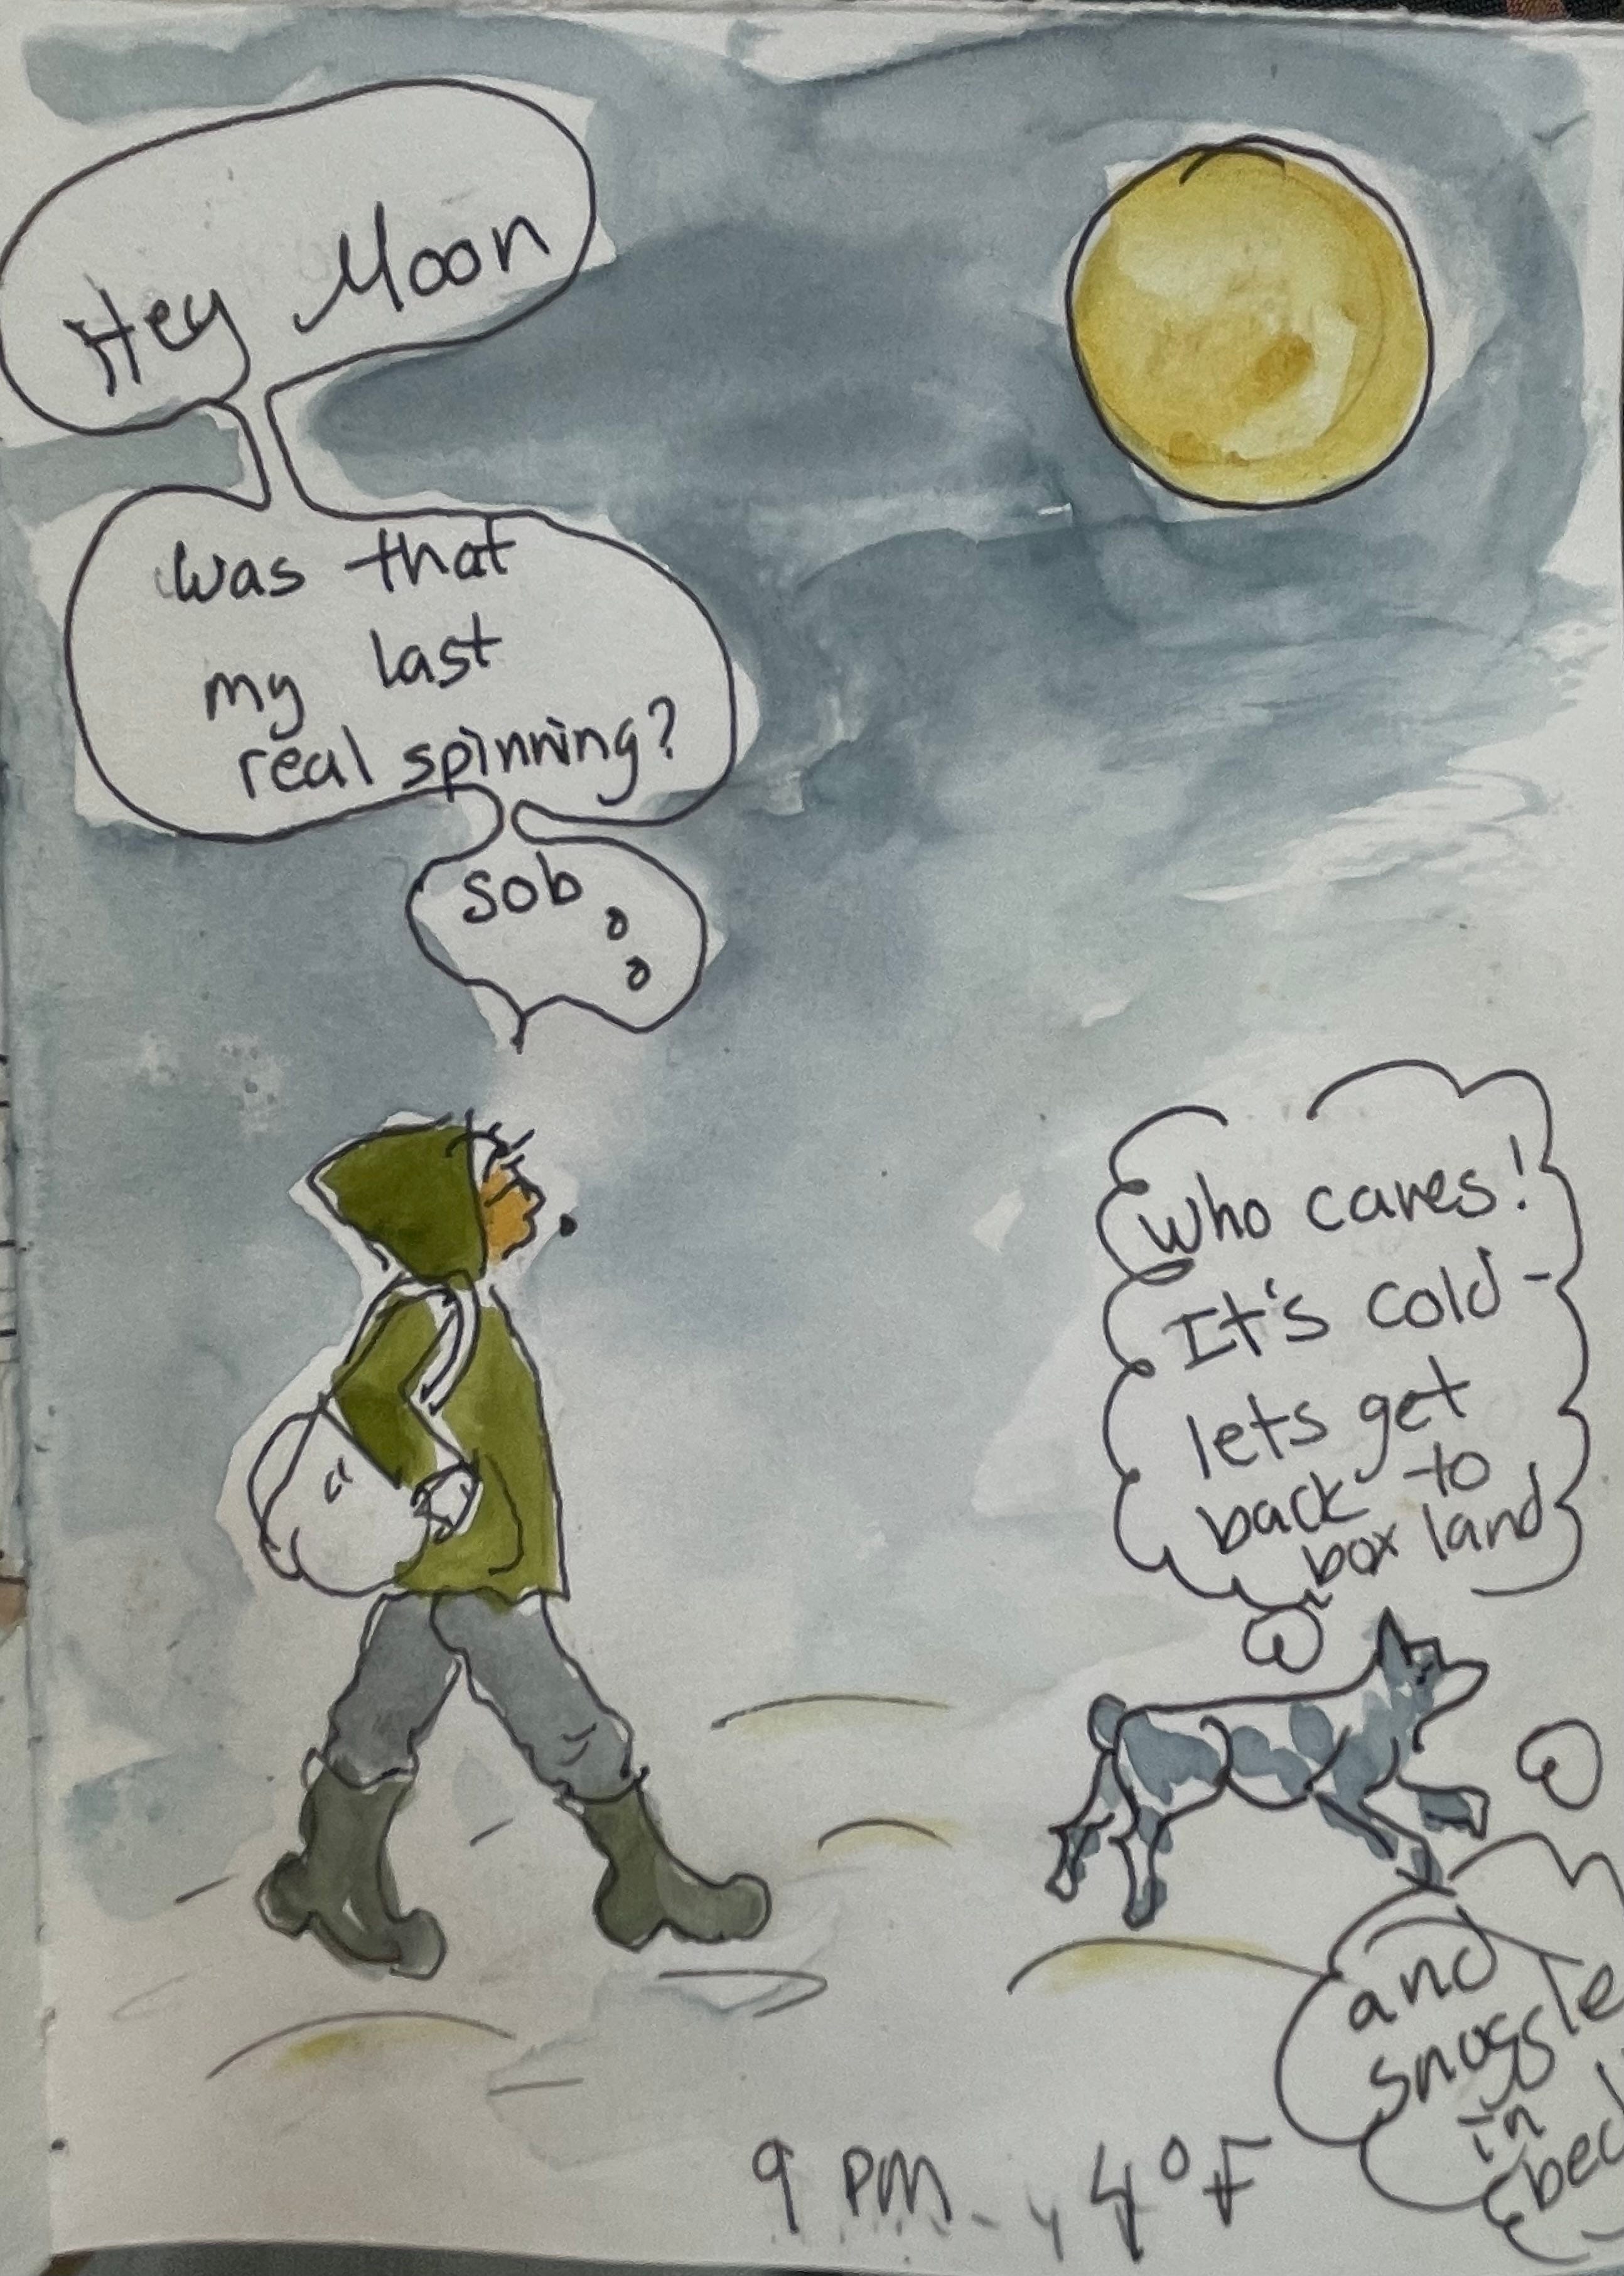 Hey Moon
was that
my last
real spinning?
sob
who cares!
It's cold -
lets get
back to
box land
and
snuggle
in
bed
9 PM 4°F